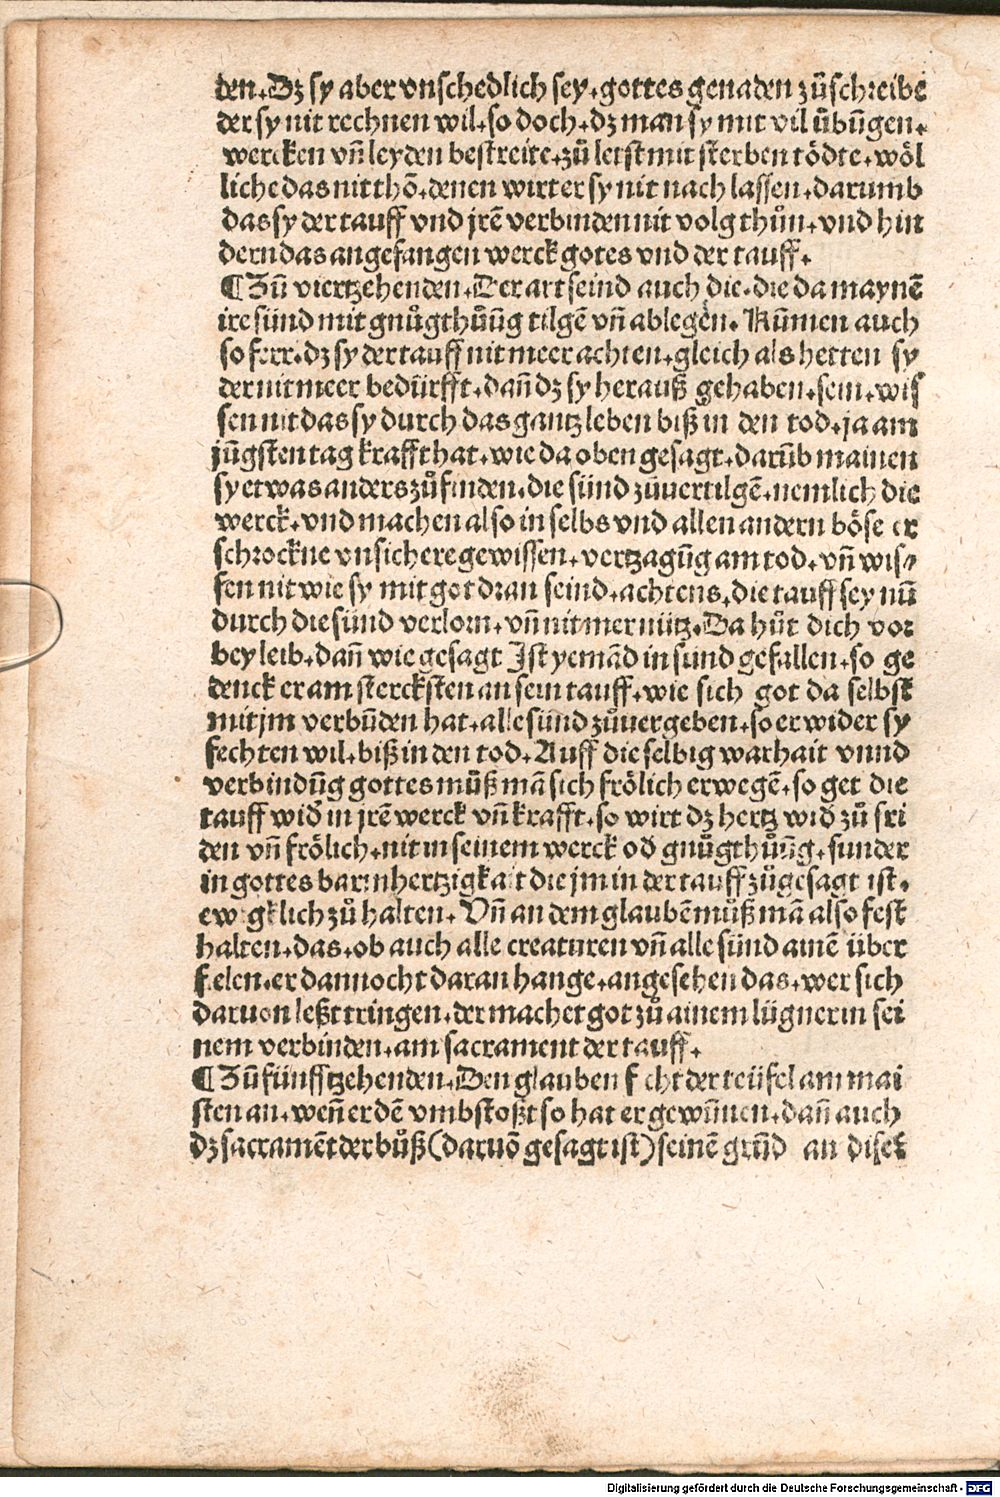 den. Dz sy aber vnschedlich sey. gottes genaden zůschreibē
der sy nit rechnen wil. so doch. dz man sy mit vil ůbūgen.
wercken vñ leyden bestreite. zů letst mit sterben tödte. wöl
liche das nit thō. denen wirt er sy nit nach lassen. darumb
das sy der tauff vnd jrē verbinden nit volg thůn. vnd hin
dern das angefangen werck gotes vnd der tauff.
¶ Zū viertzehenden. Der art seind auch die. die da maynē
ire sünd mit gnůgthůūg tilgē vñ ablegen. Kūmen auch
so ferr. dz sy der tauff nit meer achten. gleich als hetten sy
der nit meer bedürfft. dañ dz sy herauß gehaben. sein. wis
sen nit das sy durch das gantz leben biß in den tod. ja am
jūgsten tag krafft hat. wie da oben gesagt. darūb mainen
sy etwas anders zůfinden. die sünd zůuertilgē. nemlich die
werck. vnd machen also in selbs vnd allen andern böse er
schrockne vnsichere gewissen. vertzagūg am tod. vñ wis⸗
sen nit wie sy mit got dran seind. achtens. die tauff sey nū
durch die sünd verlorn. vñ nit mer nütz. Da hůt dich vor
bey leib. dañ wie gesagt Ist yemād in sünd gefallen. so ge
denck er am stercksten an sein tauff. wie sich got da selbst
mit jm verbūden hat. alle sünd zůuergeben. so er wider sy
fechten wil. biß in den tod. Auff die selbig warhait vnnd
verbindūg gottes můß mā sich frölich erwegē. so get die
tauff wid̕ in jrē werck vñ krafft. so wirt dz hertz wid̕ zů fri
den vñ frölich. nit in seinem werck od̕ gnůgthůūg. sunder
in gottes barmhertzigkait die jm in der tauff zůgesagt ist.
ewigklich zů halten. Vñ an dem glaubē můß mā also fest
halten. das. ob auch alle creaturen vñ alle sünd ainē über
fielen. er dannocht daran hange. angesehen das. wer sich
daruon leßt tringen. der machet got zů ainem lügner in sei
nem verbinden. am sacrament der tauff.
¶ Zū fünfftzehenden. Den glauben ficht der teüfel am mai
sten an. weñ er dē vmbstoßt so hat er gewūnen. dañ auch
dz sacramēt der bůß (daruō gesagt ist) seinē grūd an diser
Digitalisierung gefördert durch die Deutsche Forschungsgemeinschaft - DFG